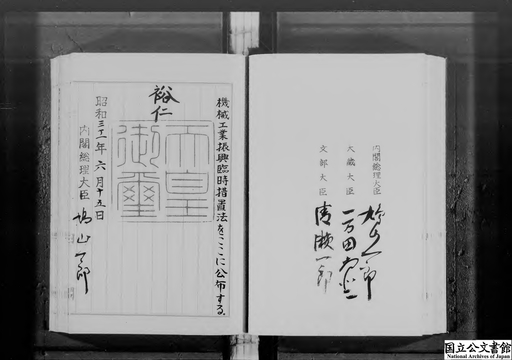 機械工業振興臨時措置法をここに公布する。
裕仁
天皇
御璽
昭和三十一年六月十五日
内閣総理大臣 鳩山一郎
内閣総理大臣 鳩山一郎
大蔵大臣 一万田尚登
文部大臣 清瀬一郎
国立公文書館
National Archives of Japan